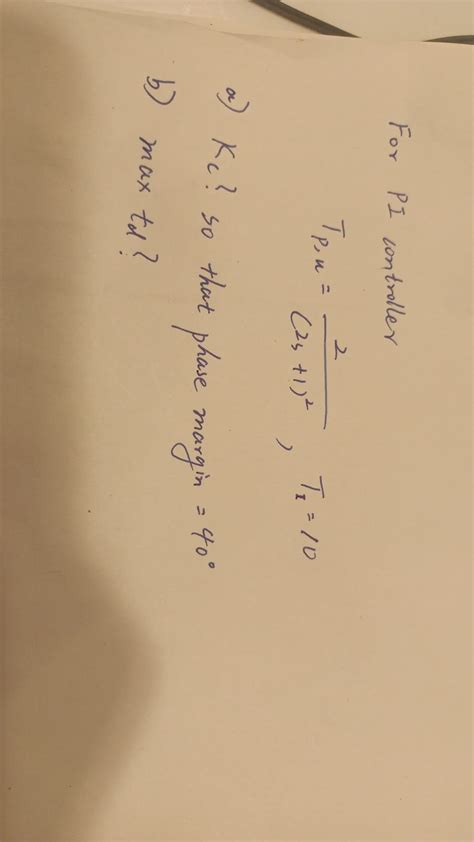 For PI controller
T_{P,u} = 2/(2s+1)², T_I = 10
a) Kc? so that phase margin = 40°
b) max td?